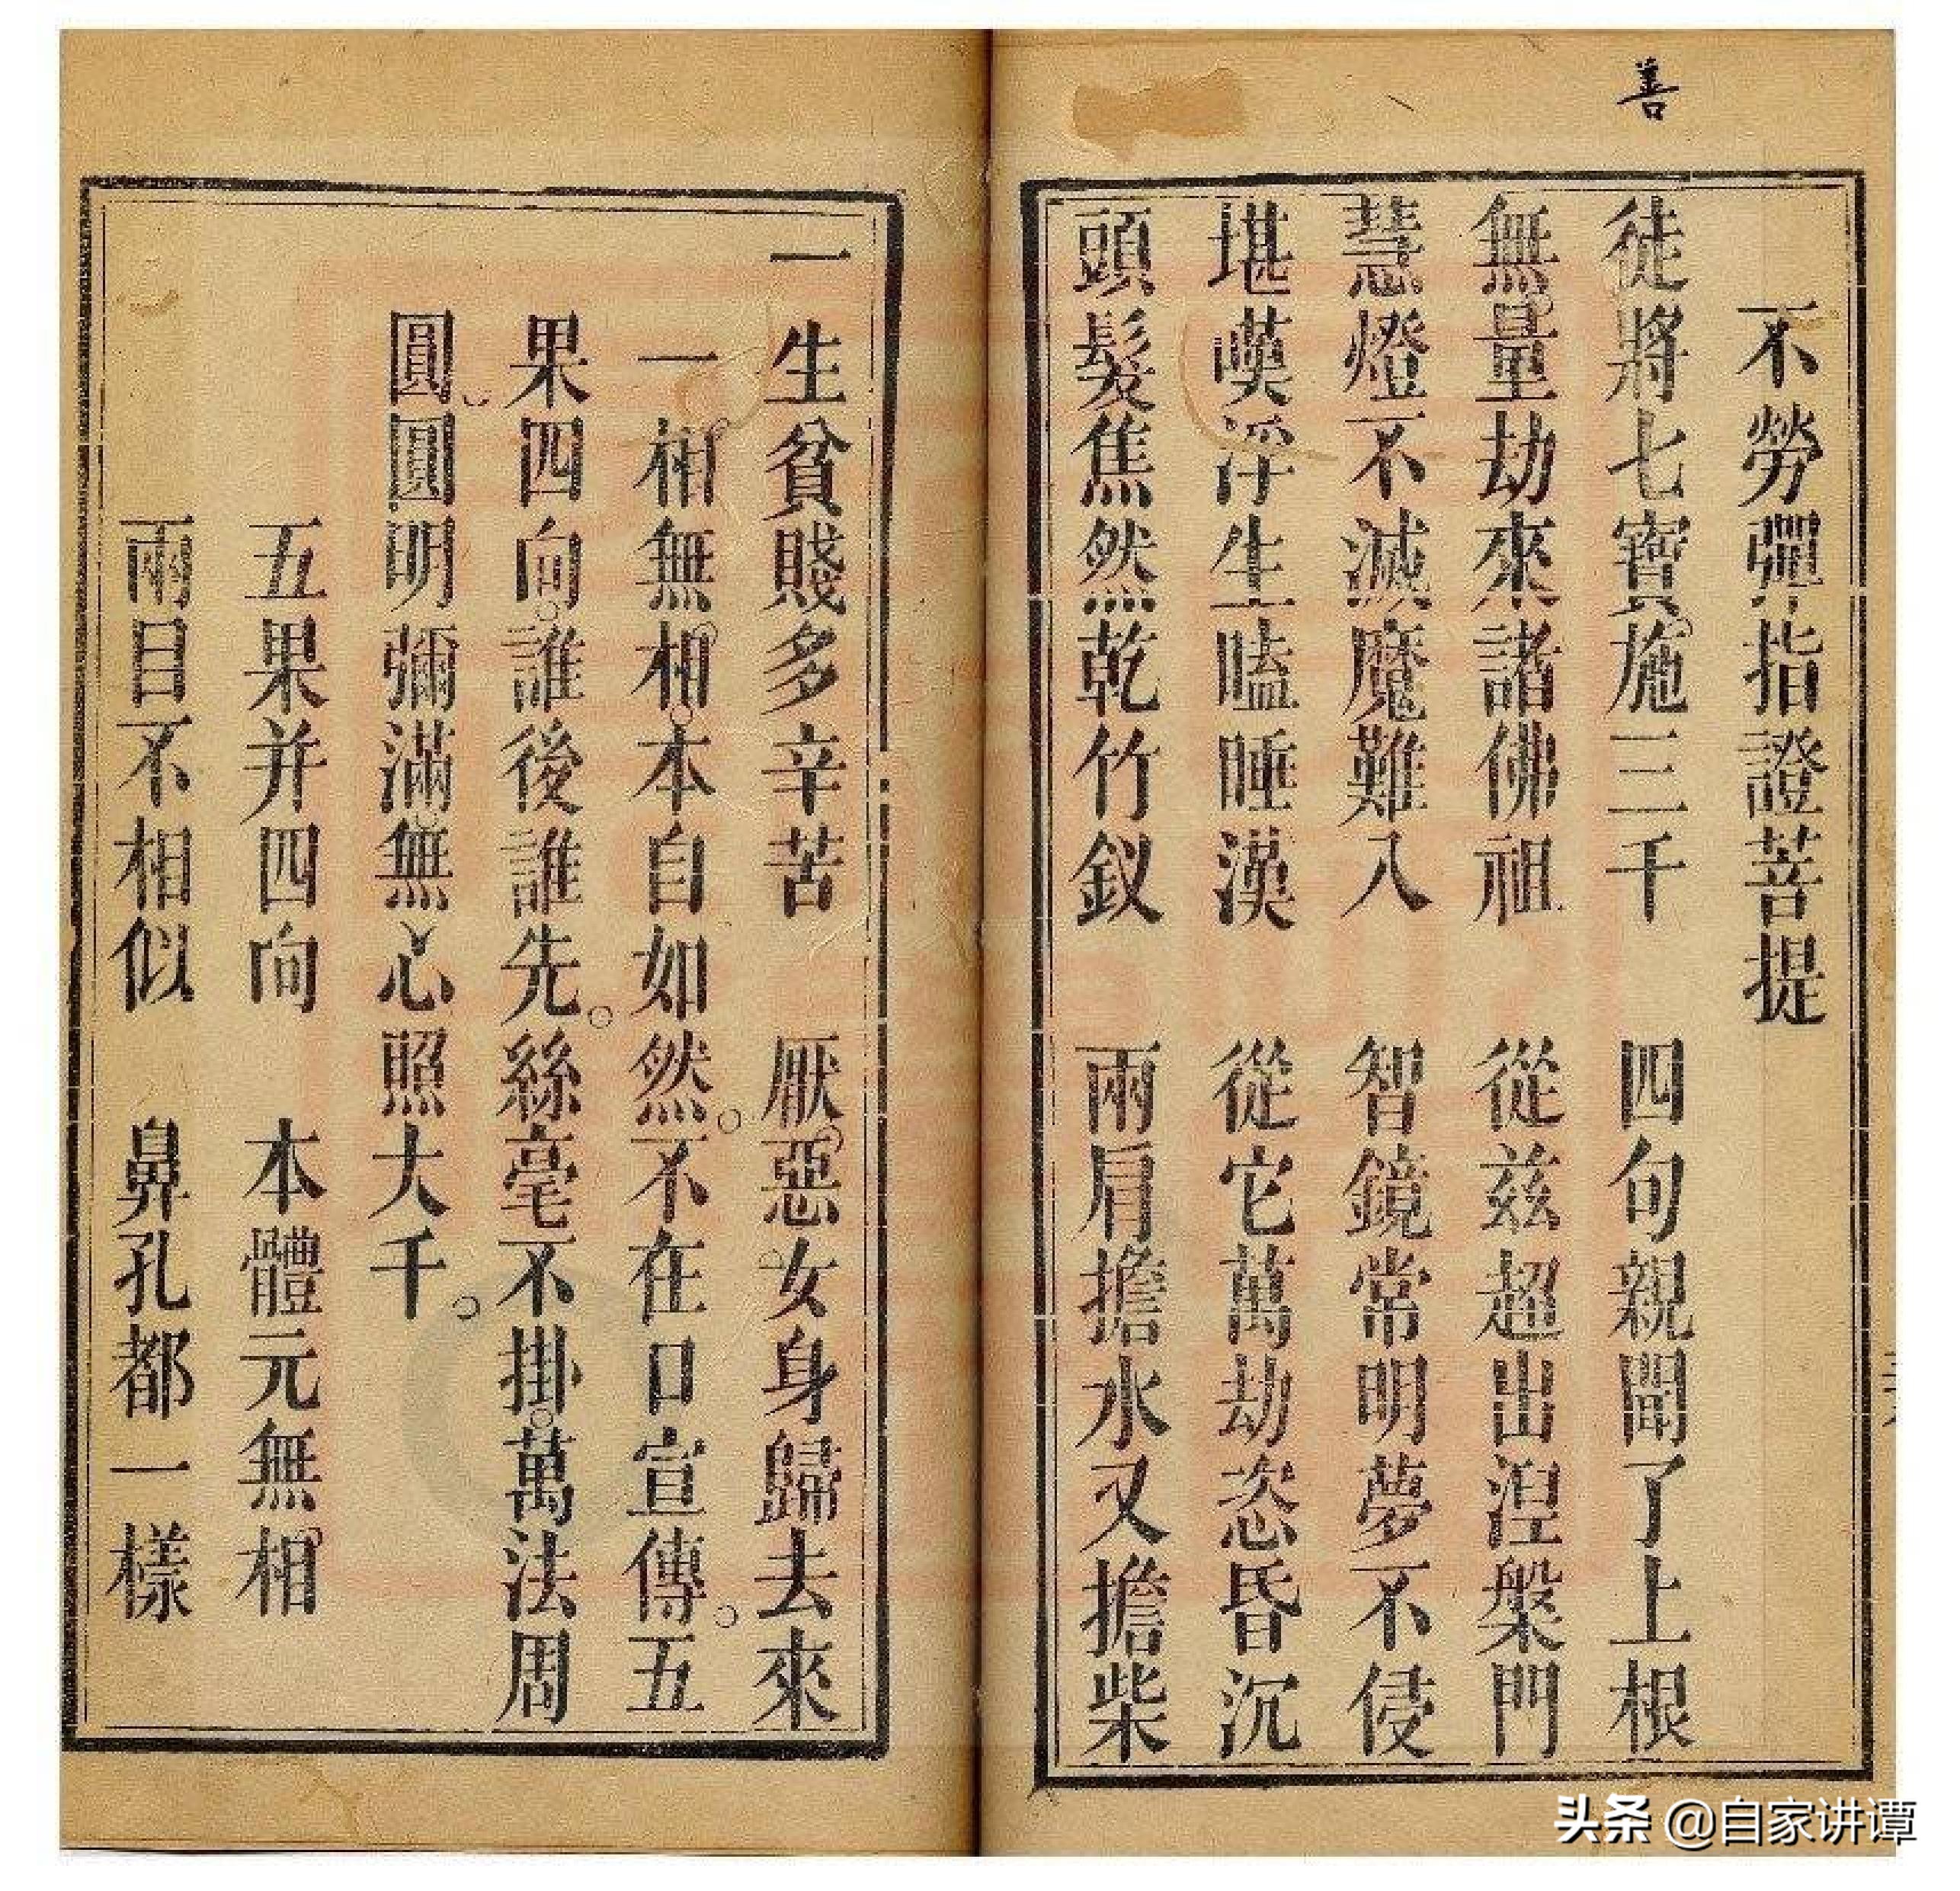 善
不勞彈指證菩提
徒將七寶施三千 四句親聞了上根
無量劫來諸佛祖 從茲超出涅槃門
慧燈不滅魔難入 智鏡常明夢不侵
堪嘆浮生瞌睡漢 從它萬劫恣昏沉
頭髮焦然乾竹釵 兩肩擔水又擔柴
一生貧賤多辛苦 厭惡女身歸去來
一相無相本自如然。不在口宣傳。五
果四向。誰後誰先。絲毫不掛。萬法周
圓。圓明彌滿。無心照大千。
五果并四向 本體元無相
兩目不相似 鼻孔都一樣
头条 @自家讲谭